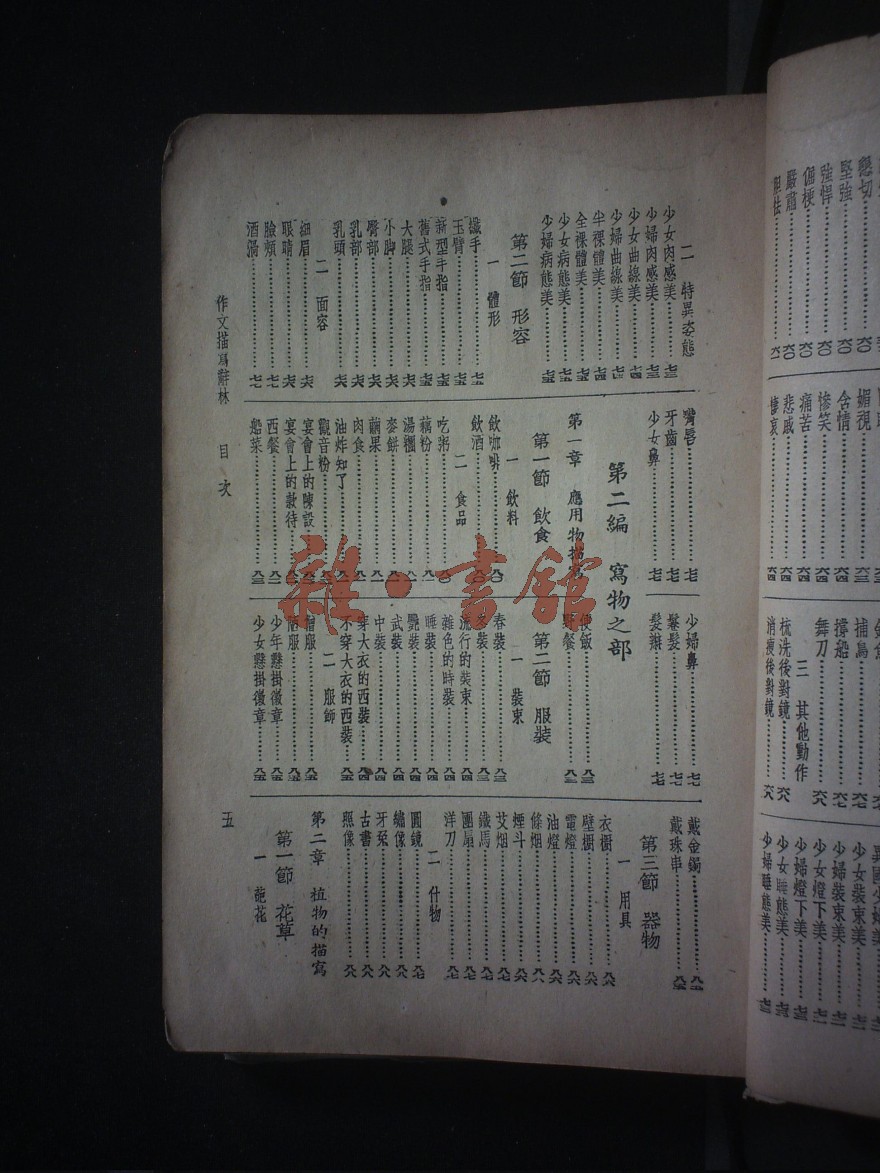 二 特異姿態
少女肉感美………七三
少婦肉感美………七三
少女曲線美………七三
少婦曲線美………七四
半裸體美………七四
全裸體美………七四
少女病態美………七五
少婦病態美………七五
第二節 形容
一 體形
纖手………七五
玉臂………七五
新型手指………七五
舊式手指………七五
大腿………七六
小脚………七六
臀部………七六
乳部………七六
乳頭………七六
二 面容
細眉………七六
眼睛………七七
臉頰………七七
酒渦………七七
嘴唇………七七
牙齒………七七
少女鼻………七七
第二編 寫物之部
第一章 應用物描寫
第一節 飲食
一 飲料
飲咖啡………八〇
飲酒………八〇
二 食品
吃粥………八〇
藕粉………八一
湯糰………八一
麥餅………八一
繭果………八一
肉食………八一
油炸知了………
觀音粉………
宴會上的陳設………
宴會上的款待………
西餐………八二
船菜………八三
少婦鼻………七七
鬈髮………七七
髮辮………七七
便飯………八三
野餐………八三
第二節 服裝
一 裝束
春裝………八三
冬裝………八三
流行的裝束………八四
雜色的時裝………八四
睡裝………八四
艷裝………八四
武裝………八四
中裝………八四
穿大衣的西裝………八四
不穿大衣的西裝………八五
二 服飾
僧服………八五
少年懸掛徽章………八五
少女懸掛徽章………八五
戴金鐲………八五
戴珠串………八六
第三節 器物
一 用具
衣櫥………八六
壁櫥………八六
電燈………八六
油燈………八六
條烟………八六
煙斗………八七
艾烟………八七
鐵馬………八七
團扇………八七
洋刀………八七
二 什物
圓鏡………八七
繡像………八八
牙箸………八八
古書………八八
照像………八八
第二章 植物的描寫
第一節 花草
一 葩花
作文描寫辭林 目次
五
懇切
堅強………六〇
強悍………六〇
倔梗………六〇
嚴肅………六〇
媚視
含情………六四
慘笑………六四
痛苦………六四
悲戚………六四
捕鳥
撐船
舞刀
三 其他動作
梳洗後對鏡………六八
消瘦後對鏡………六八
少女裝束美………七二
少婦裝束美………七二
少女燈下美………七二
少婦燈下美………七三
少女睡態美………七三
少婦睡態美………七三
雜·書館